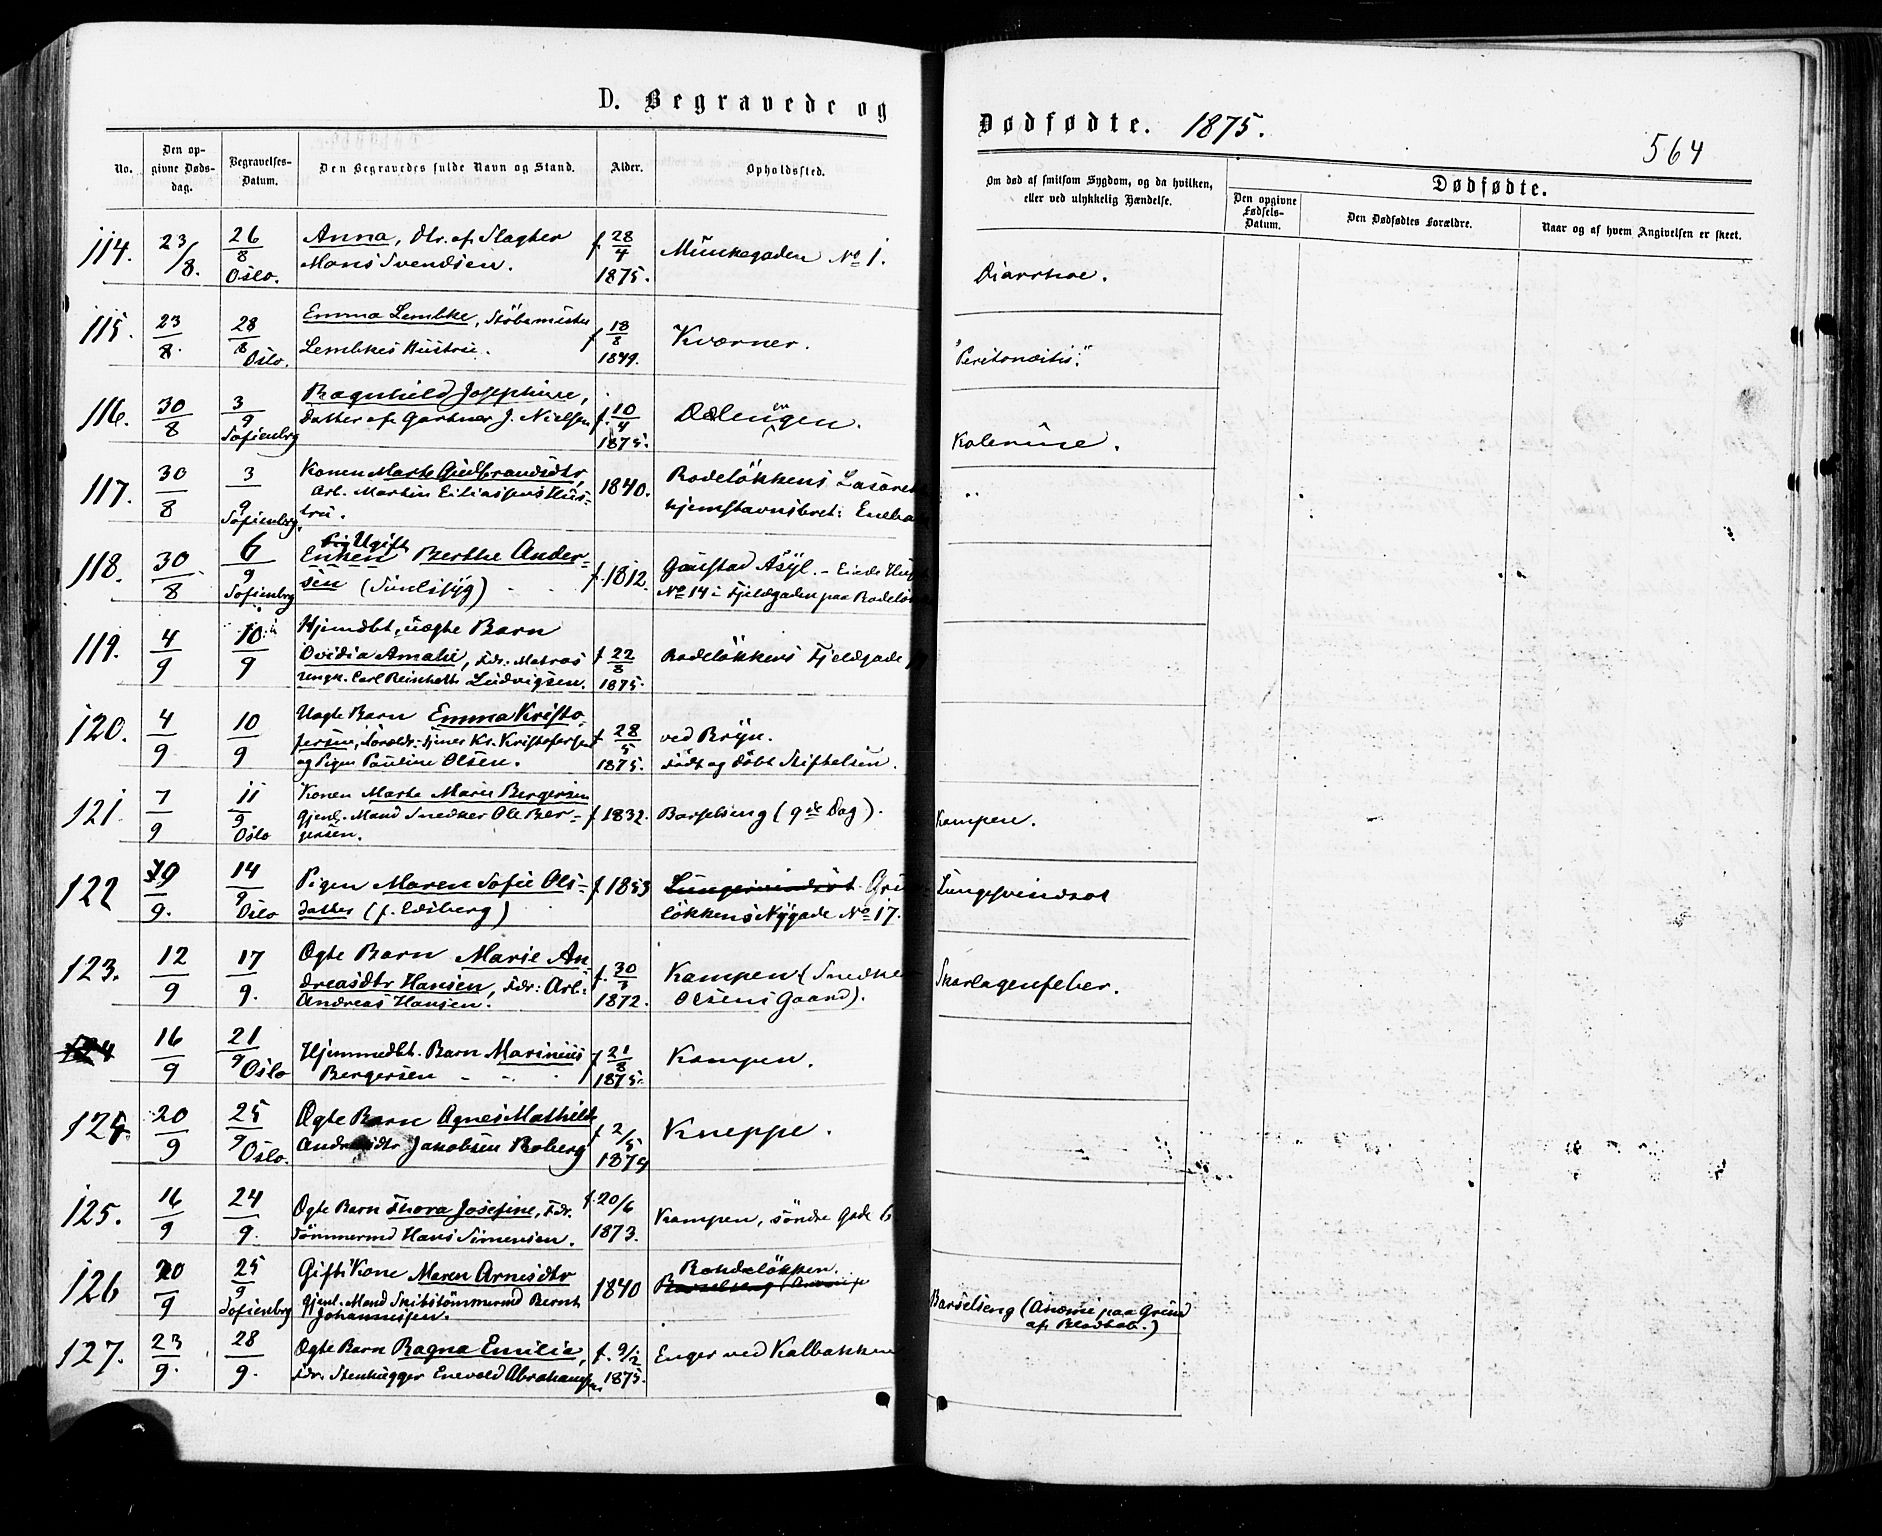 D. Begravede og
Dødfødte. 1875.
564
No.
Den opgivne Dødsdag.
Begravelses-Datum.
Den Begravedes fulde Navn og Stand.
Alder.
Opholdssted.
Om død af smitsom Sygdom, og da hvilken,
eller ved ulykkelig Hændelse.
Dødfødte.
Den opgivne Fødsels-Datum.
Den Dødfødtes Forældre.
Naar og af hvem Angivelsen er skeet.
114. 23/8. 26/8 Oslo. Anna, Dtr. af Slagter
Mons Svendsen. f. 28/4 1875. Munkegaden No 1. Diarrhoe.
115. 23/8. 28/8 Oslo. Emma Lembke, Støbemester
Lembkes Hustru. f. 18/8 1849. Kværner. "Peritonæitis."
116. 30/8 3/9 Sofienbrg Ragnhild Josephine,
Datter af Gartner J. Nielsen f. 10/4 1875. Dælenengen. Kolerine.
117. 30/8 3/9 Sofienbrg. Konen Marte Gudbrandsdtr,
Arb. Martin Eiliassens Hustru. 1840. Rodeløkkens Lasaret
hjemstavnsbret: Eneba
118. 30/8 6/9 Sofienbrg Ugift
Enken Berthe Andersen (Sindssyg) f. 1812. Gaustad Asyl. – Eiede Hus
No 14 i Fjeldgaden paa Rodeløk
119. 4/9 10/9 Hjemdbt. uægte Barn
Ovidia Amalie, Fdr: Matros
Carl Reinholdt Ludvigsen. f. 22/8 1875. Rodeløkkens Fjeldgade
120. 4/9 10/9 Uægte Barn Emma Kristofersen, Foreldr. Tjener Kr. Kristofersen
og Pigen Pauline Olsen. f. 28/5 1875. ved Bryn.
Født og døbt Stiftelsen.
121. 7/9 11/9 Oslo Konen Marte Marie Bergersen
Gjenl. Mand Snedker Ole Bergersen. f. 1832. Barselseng (9de Dag). Kampen.
122 9/9. 14/9 Oslo Pigen Maren Sofie Olsdatter (f. Edsberg) f. 1853 Lungesvindsot Grün
løkkens Nygade No 17. Lungesvindsot
123. 12/9 17/9. Ægte Barn Marie Andreasdtr Hansen, Fdr: Arb.
Andreas Hansen. f. 30/ 1872. Kampen (Snedke
Olsens Gaard). Skarlagensfeber.
124 16/9 21/9 Oslo Hjemmedbt. Barn Marinius
Bergersen f. 21/8 1875. Kampen.
124. 20/9 25/9 Oslo. Ægte Barn Agnes Mathilde
Jakobsen Roberg f. 2/5 1874 Kneppe.
125. 16/9 24/9. Ægte Barn Thora Josefine, Fdr.
Tømmermd Hans Simensen. f. 20/6 1873. Kampen, søndre Gade 6
126 20/9 25/9 Sofienbrg Gift Kone Maren Arnesdtr
Gjenl. Mand Skibstømmermd Bernt
Johannessen. 1840 Rodeløkken.
Barselseng (Anæmi paa Grund
af Blodtab.)
127. 23/9. 28/9. Ægte Barn Ragna Emilie,
Fdr. Stenhugger Enevold Abrahamsen f. 9/2 1875. Enger ved Kalbakken